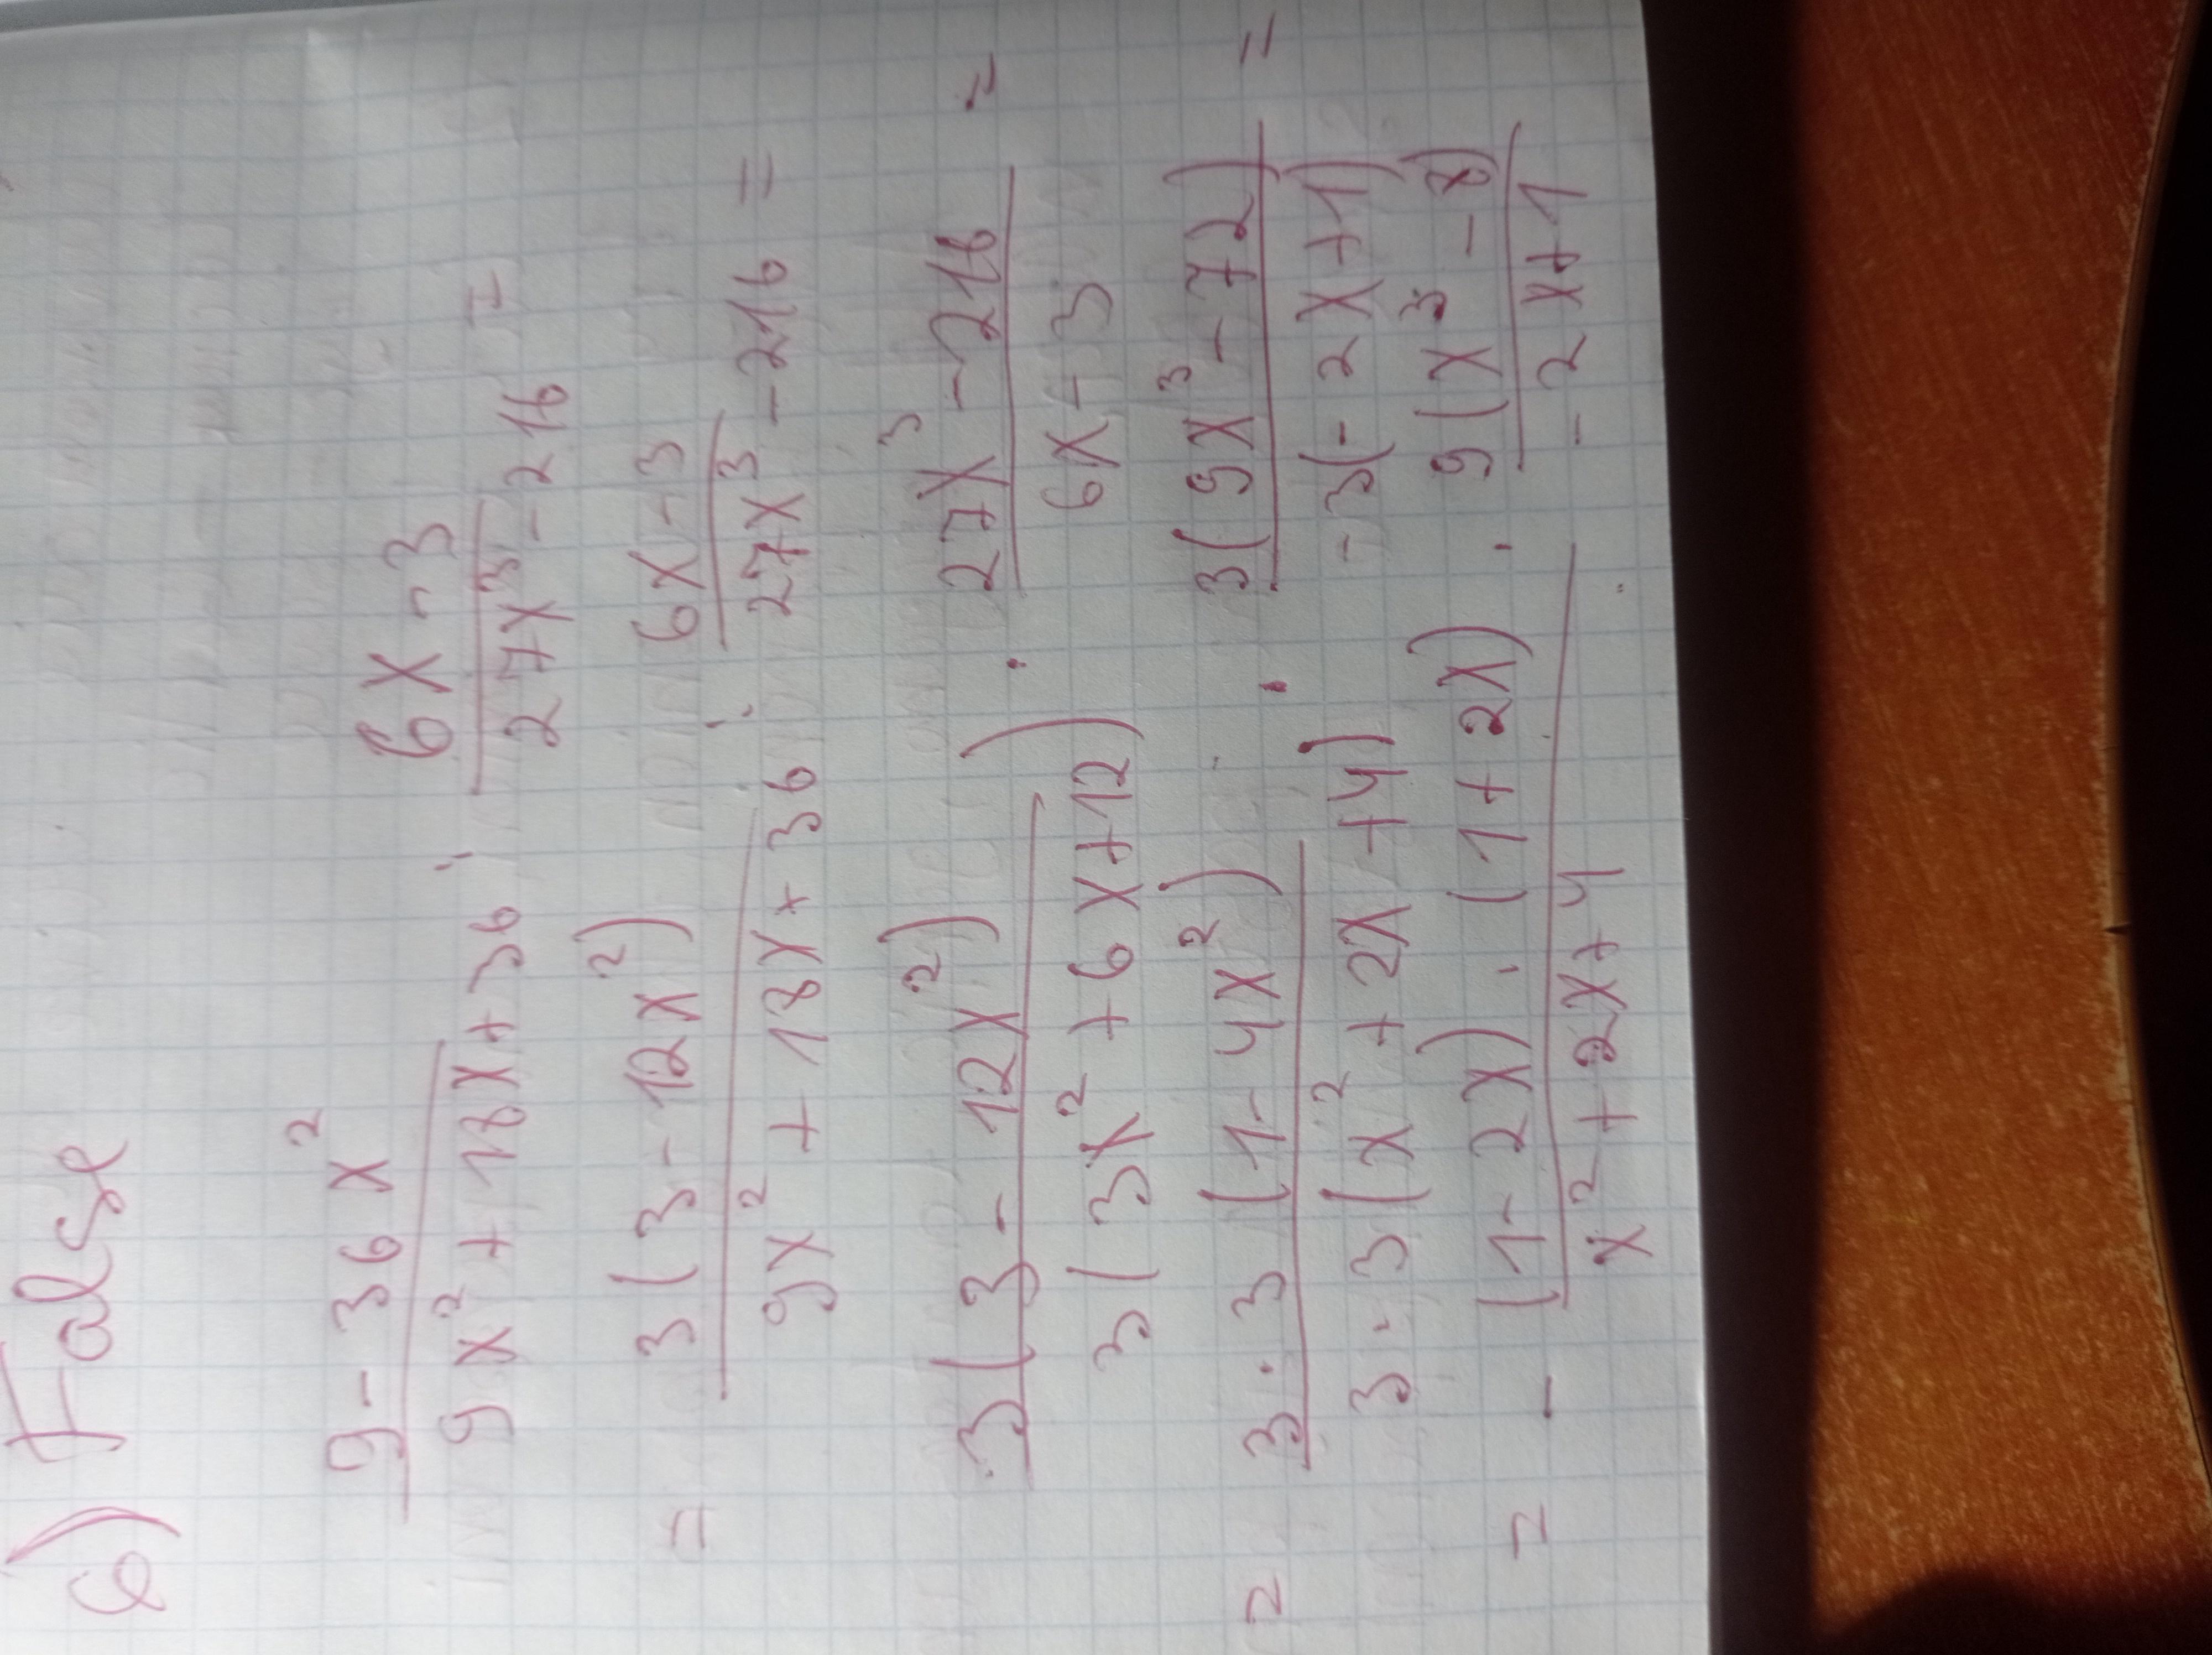 6) False
(9 - 36x²)/(9x² + 18x + 36) : (6x - 3)/(27x³ - 216) =
= 3(3 - 12x²)/(9x² + 18x + 36) : (6x - 3)/(27x³ - 216) =
3(3 - 12x²)/(3(3x² + 6x + 12)) · (27x³ - 216)/(6x - 3) =
= 3·3(1 - 4x²)/(3·3(x² + 2x + 4)) · 3(9x³ - 72)/(-3(-2x + 1)) =
= - (1 - 2x)·(1 + 2x)/(x² + 2x + 4) · 9(x³ - 8)/(-2x + 1)